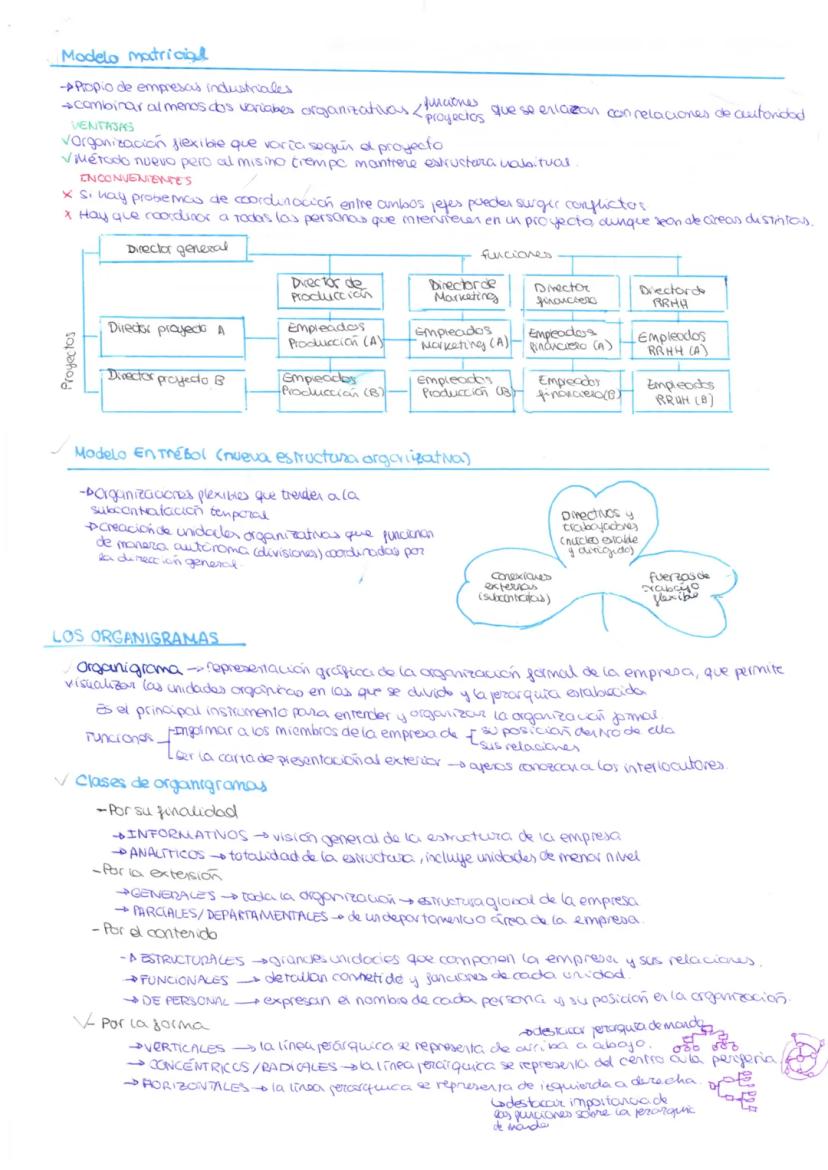 Modelo matricial
→ Propio de empresas industriales
→ combinar al menos dos variables organizativas < funciones proyectos que se enlazan con relaciones de autoridad
VENTAJAS
✓ Organización flexible que varía según el proyecto
✓ Método nuevo pero al mismo tiempo mantiene estructura habitual.
INCONVENIENTES
x Si hay problemas de coordinación entre ambos jefes pueden surgir conflictos
x Hay que coordinar a todas las personas que intervienen en un proyecto aunque sean de áreas distintas.
Director general
funciones
Director de Producción
Director de Marketing
Director financiero
Director de RRHH
Proyectos
Director proyecto A
Empleados Producción (A)
Empleados Marketing (A)
Empleados financiero (A)
Empleados RRHH (A)
Director proyecto B
Empleados Producción (B)
Empleados Producción (B)
Empleados financiero (B)
Empleados RRHH (B)
Modelo En Trébol (nueva estructura organizativa)
→ Organizaciones flexibles que tienden a la
subcontratación temporal
→ creación de unidades organizativas que funcionan
de manera autónoma (divisiones) coordinadas por
la dirección general.
Directivos y
trabajadores
(núcleo estable
y dirigido)
conexiones
externas
(subcontratas)
fuerzas de
trabajo
flexible
LOS ORGANIGRAMAS
Organigrama → representación gráfica de la organización formal de la empresa, que permite
visualizar las unidades orgánicas en las que se divide y la jerarquía establecida
Es el principal instrumento para entender y organizar la organización formal.
Funciones
Informar a los miembros de la empresa de
su posición dentro de ella
sus relaciones
Ser la carta de presentación al exterior → ajenos conozcan a los interlocutores.
✓ Clases de organigramas
- Por su finalidad
→ INFORMATIVOS → visión general de la estructura de la empresa
→ ANALÍTICOS → totalidad de la estructura, incluye unidades de menor nivel
- Por la extensión
→ GENERALES → toda la organización → estructura global de la empresa
→ PARCIALES/DEPARTAMENTALES → de un departamento o área de la empresa.
- Por el contenido
→ ESTRUCTURALES → grandes unidades que componen la empresa y sus relaciones.
→ FUNCIONALES → detallan cometido y funciones de cada unidad.
→ DE PERSONAL → expresan el nombre de cada persona y su posición en la organización.
✓ - Por la forma
→ destacar jerarquía de mando
→ VERTICALES → la línea jerárquica se representa de arriba a abajo.
→ CONCÉNTRICOS/RADICALES → la línea jerárquica se representa del centro a la periferia
→ HORIZONTALES → la línea jerárquica se representa de izquierda a derecha.
↳ destacar importancia de
las funciones sobre la jerarquía
de mando